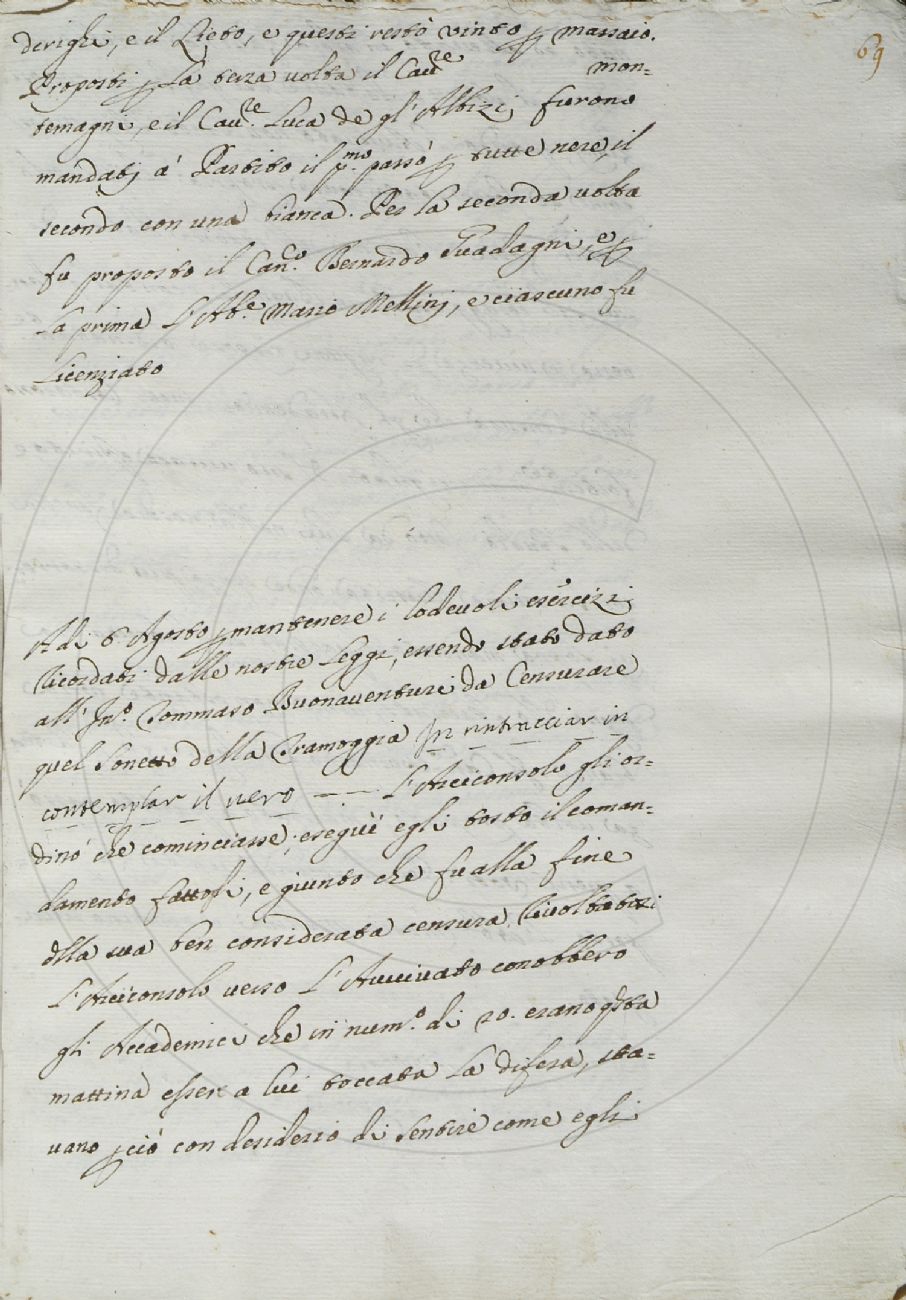 69
derighi, e il Lieto, e questi restò vinto p massaio.
Proposti p la terza volta il Cavre mon=
temagni, e il Cav.re Luca de gl' Albizi furono
mandatj á Partito il p.mo passó p tutte nere, il
secondo con una bianca. Per la seconda volta
fu proposto il Can.o Bernardo Guadagni, e p
la prima l'Ab.e Mario Mellinj, e ciascuno fu
Licenziato
Adi 6 Agosto p mantenere i lodevoli esercizi
Ricordati dalle nostre Leggi, essendo stato dato
all' Inno. Tommaso Buonaventuri da Censurare
quel Sonetto della Tramoggia In rintracciar in
contemplar il vero —— L'Arciconsolo gli or=
dinó che cominciasse, eseguì egli tosto il coman=
damento fattogli, e giunto che fu alla fine
dlla sua ben considerata censura, Rivoltatosi
l'Arciconsolo verso L'Avvivato conobbero
gli Accademici che in num.o di 20. erano qsta
mattina esser a lui toccata la difesa, sta=
vano pciò con desiderio di sentire come egli